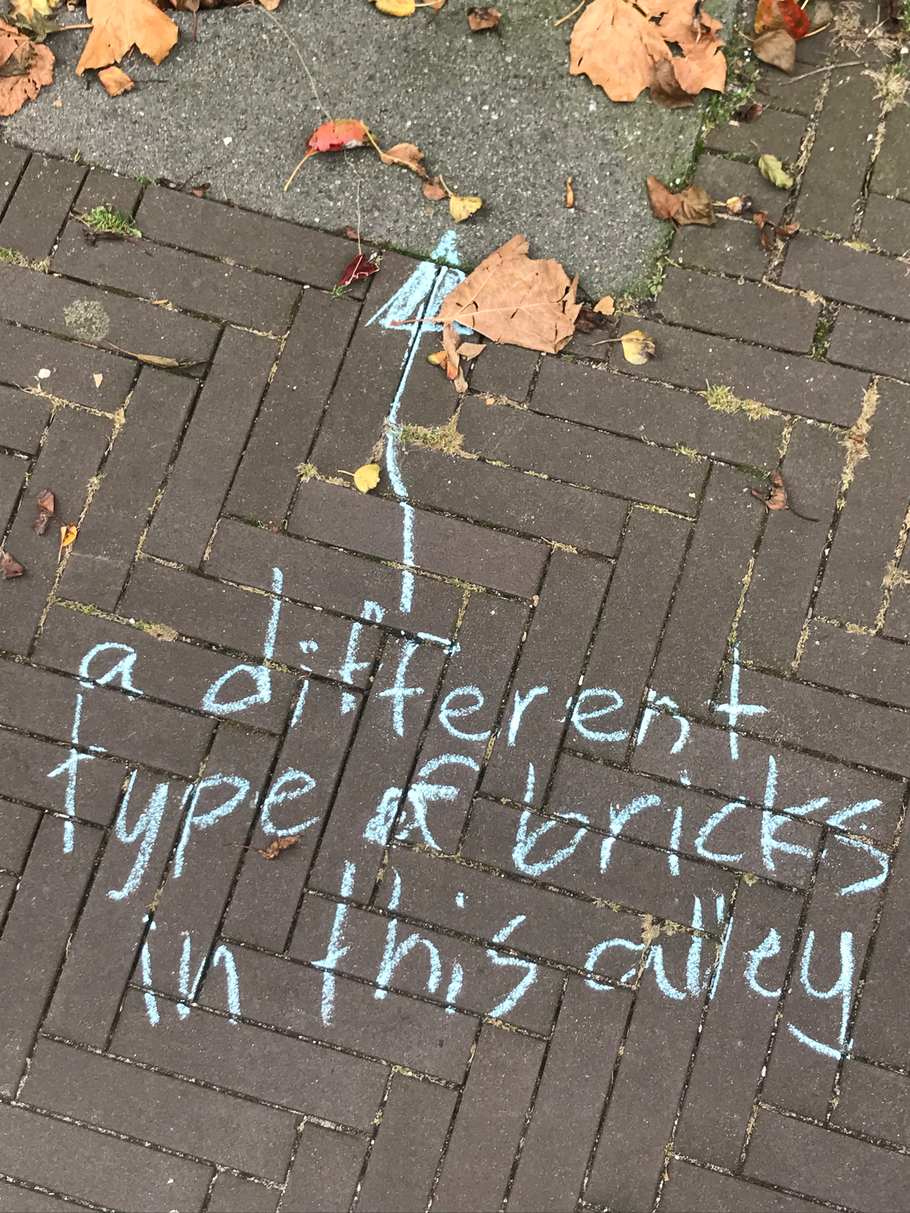 a different
type of bricks
in this alley